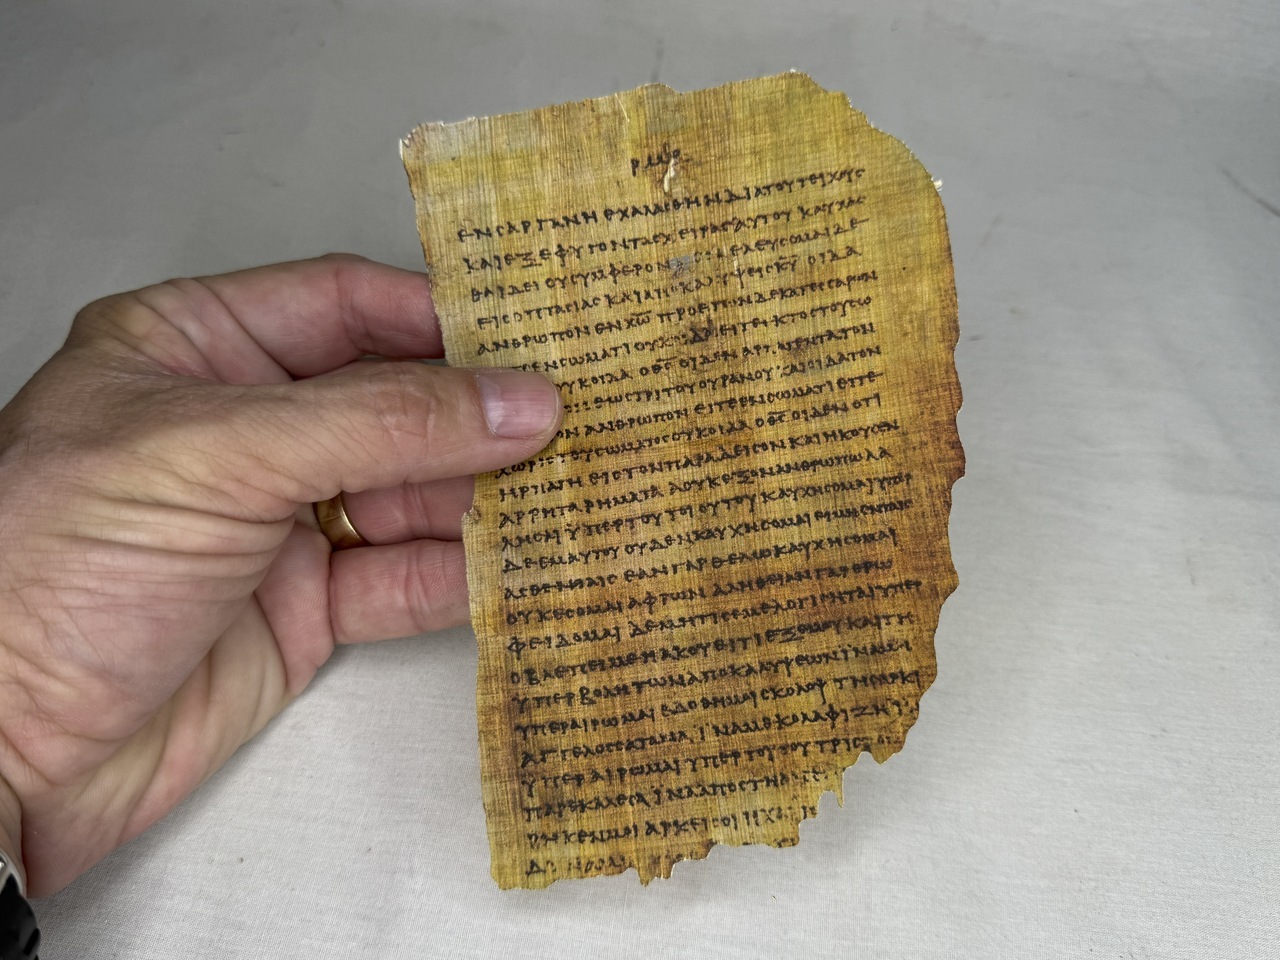 ΕΝ CΑΡΓΑΝΗ ΕΧΑΛΑCΘΗΝ ΔΙΑ ΤΟΥ ΤΕΙΧΟΥC
ΚΑΙ ΕΞΕΦΥΓΟΝ ΤΑC ΧΕΙΡΑC ΑΥΤΟΥ ΚΑΥΧΑC
ΘΑΙ ΔΕΙ ΟΥ CΥΜΦΕΡΟΝ ΕΛΕΥCΟΜΑΙ ΔΕ
ΕΙC ΟΠΤΑCΙΑC ΚΑΙ Κ̅Υ̅ ΟΙΔΑ
ΑΝΘΡΩΠΟΝ ΕΝ Χ̅Ω̅ ΠΡΟ ΕΤΩΝ ΔΕΚΑΤΕCCΑΡΩΝ
ΕΝ CΩΜΑΤΙ ΟΥΚ ΕΙΤΕ ΕΚΤΟC ΤΟΥ CΩ
ΟΥΚ ΟΙΔΑ Ο Θ̅C̅ ΟΙΔΕΝ ΑΡΠΑΓΕΝΤΑ ΤΟΝ
ΕΩC ΤΡΙΤΟΥ ΟΥΡΑΝΟΥ ΚΑΙ ΟΙΔΑ ΤΟΝ
ΑΝΘΡΩΠΟΝ ΕΙΤΕ ΕΝ CΩΜΑΤΙ ΕΙΤΕ
ΧΩΡΙC ΤΟΥ CΩΜΑΤΟC ΟΥΚ ΟΙΔΑ Ο Θ̅C̅ ΟΙΔΕΝ ΟΤΙ
ΗΡΠΑΓΗ ΕΙC ΤΟΝ ΠΑΡΑΔΕΙCΟΝ ΚΑΙ ΗΚΟΥCΕΝ
ΑΡΡΗΤΑ ΡΗΜΑΤΑ Α ΟΥΚ ΕΞΟΝ ΑΝΘΡΩΠΩ ΛΑ
ΛΗCΑΙ ΥΠΕΡ ΤΟΥ ΤΟΙΟΥΤΟΥ ΚΑΥΧΗCΟΜΑΙ ΥΠΕΡ
ΔΕ ΕΜΑΥΤΟΥ ΟΥΔΕΝ ΚΑΥΧΗCΟΜΑΙ ΕΙ ΜΗ ΕΝ ΤΑΙC
ΑCΘΕΝΙΑΙC ΕΑΝ ΓΑΡ ΘΕΛΩ ΚΑΥΧΗCΟΜΑΙ
ΟΥΚ ΕCΟΜΑΙ ΑΦΡΩΝ ΑΛΗΘΕΙΑΝ ΓΑΡ ΕΡΩ
ΦΕΙΔΟΜΑΙ ΔΕ ΜΗ ΤΙC ΕΜΕ ΛΟΓΙCΗΤΑΙ ΥΠΕΡ
Ο ΒΛΕΠΕΙ ΜΕ Η ΑΚΟΥΕΙ ΤΙ ΕΞ ΕΜΟΥ ΚΑΙ ΤΗ
ΥΠΕΡΒΟΛΗ ΤΩΝ ΑΠΟΚΑΛΥΨΕΩΝ ΙΝΑ ΜΗ
ΥΠΕΡΑΙΡΩΜΑΙ ΕΔΟΘΗ ΜΟΙ CΚΟΛΟΨ ΤΗ CΑΡΚΙ
ΑΓΓΕΛΟC CΑΤΑΝΑ ΙΝΑ ΜΕ ΚΟΛΑΦΙΖΗ
ΥΠΕΡΑΙΡΩΜΑΙ ΥΠΕΡ ΤΟΥΤΟΥ ΤΡΙC
ΠΑΡΕΚΑΛΕCΑ ΙΝΑ ΑΠΟCΤΗ
ΡΗΚΕΝ ΜΟΙ ΑΡΚΕΙ CΟΙ Η